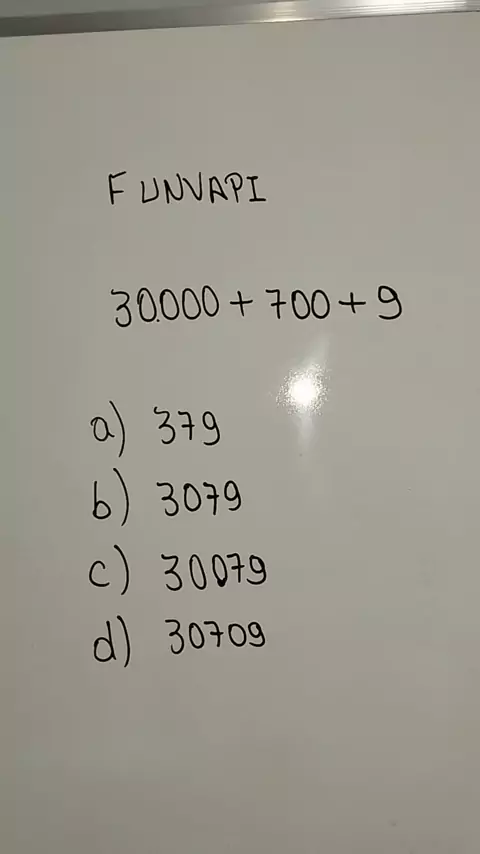 FUNVAPI
30.000 + 700 + 9
a) 379
b) 3079
c) 30079
d) 30709